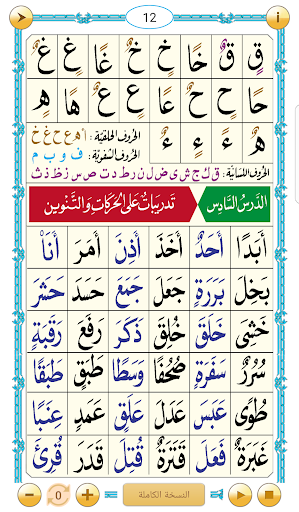 12
قٍ قٌ خًا خٍ خٌ غًا غٍ غٌ
حًا حٍ حٌ عًا عٍ عٌ هًا هٍ
هٌ ءً ءٍ ءٌ
الحُرُوفُ الحَلْقِيَّة : أ ه ع ح غ خ
الحُرُوفُ الشَّفَوِيَّة : ف و ب م
الحُرُوفُ اللِّسَانِيَّة : ق ك ج ش ي ض ل ن ر ط د ت ص س ز ظ ذ ث
الدَّرسُ السَّادِس تَدرِيبَاتٌ عَلَى الحَرَكَاتِ وَالتَّنوِين
أَبَدًا أَحَدٌ أَخَذَ أَذِنَ أَمَرَ أَنَا
بَخِلَ بَرَرَةٍ جَعَلَ جَمَعَ حَسَدَ حَشَرَ
خَشِيَ خَلَقَ خُلِقَ ذَكَرَ رَفَعَ رَقَبَةٍ
سُرُرٌ سَفَرَةٍ صُحُفًا وَسَطًا طَبَقٍ طَبَقًا
طُوًى عَبَسَ عَدَلَ عَلَقٍ عَمَدٍ عِنَبًا
غَبَرَةٌ فَعَلَ قَتَرَةٌ قُتِلَ قَدَرَ قُرِئَ
0 النسخة الكاملة